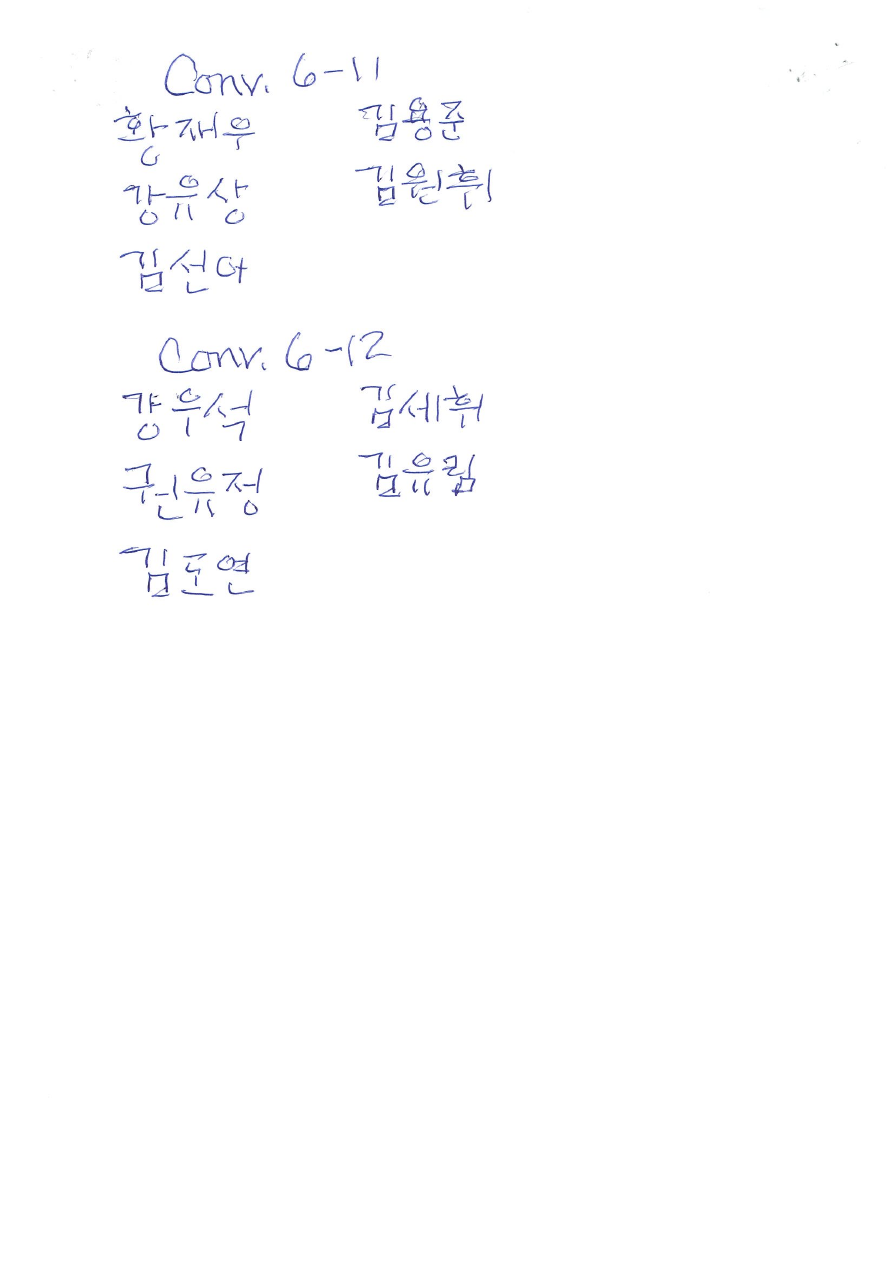 Conv. 6-11
황재우 김용준
강유상 김원휘
김선아
Conv. 6-12
강우석 김세휘
권유정 김유림
김도연